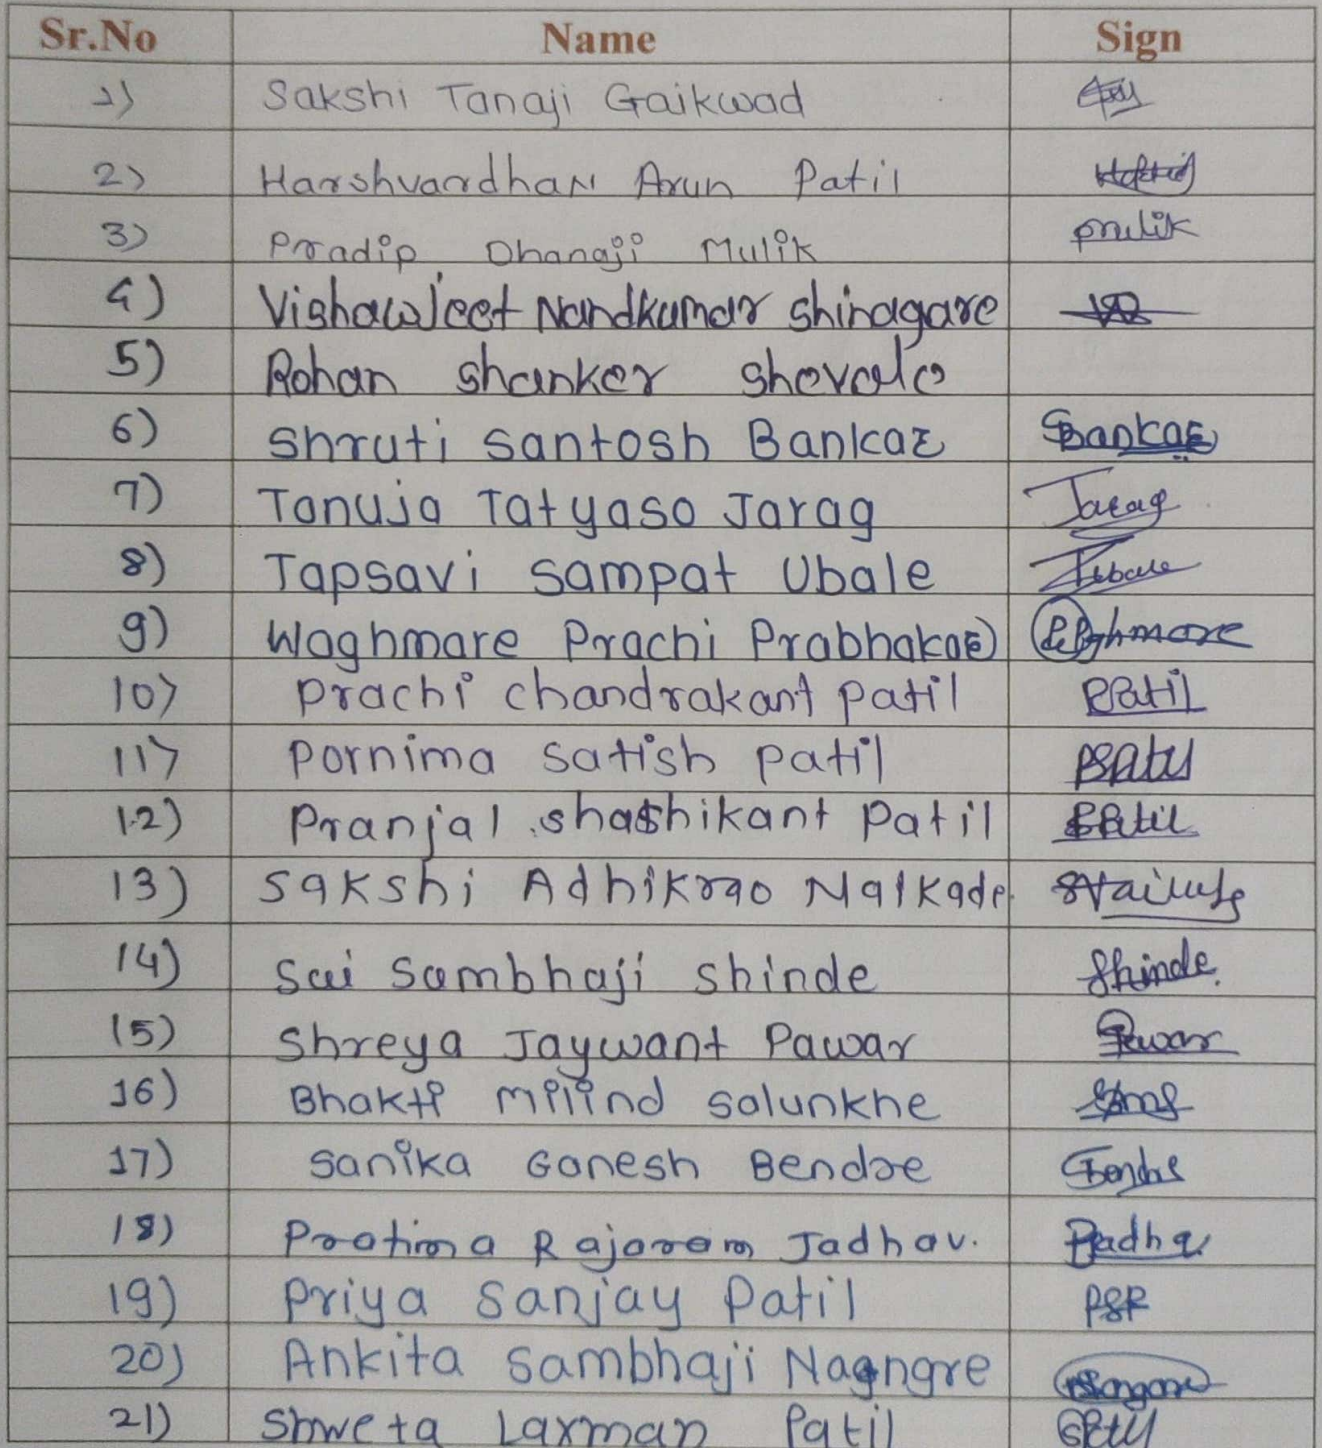 Sr.No Name Sign
1) Sakshi Tanaji Gaikwad
2) Harshvardhan Arun Patil
3) Pradip Dhanaji Mulik pmulik
4) Vishawjeet Nandkumar Shinagare
5) Rohan shanker shevale
6) Shruti Santosh Bankar SBankar
7) Tanuja Tatyaso Jarag Jarag
8) Tapsavi Sampat Ubale
9) Waghmare Prachi Prabhakar
10) Prachi chandrakant patil PPatil
11) Pornima Satish patil
12) Pranjal shashikant Patil PPatil
13) Sakshi Adhikrao Naikade
14) Sai Sambhaji Shinde Shinde
15) Shreya Jaywant Pawar Pawar
16) Bhakti Milind Salunkhe
17) Sanika Ganesh Bendre
18) Pratima Rajaram Jadhav.
19) Priya Sanjay Patil PSP
20) Ankita Sambhaji Nagngre
21) Shweta Laxman Patil